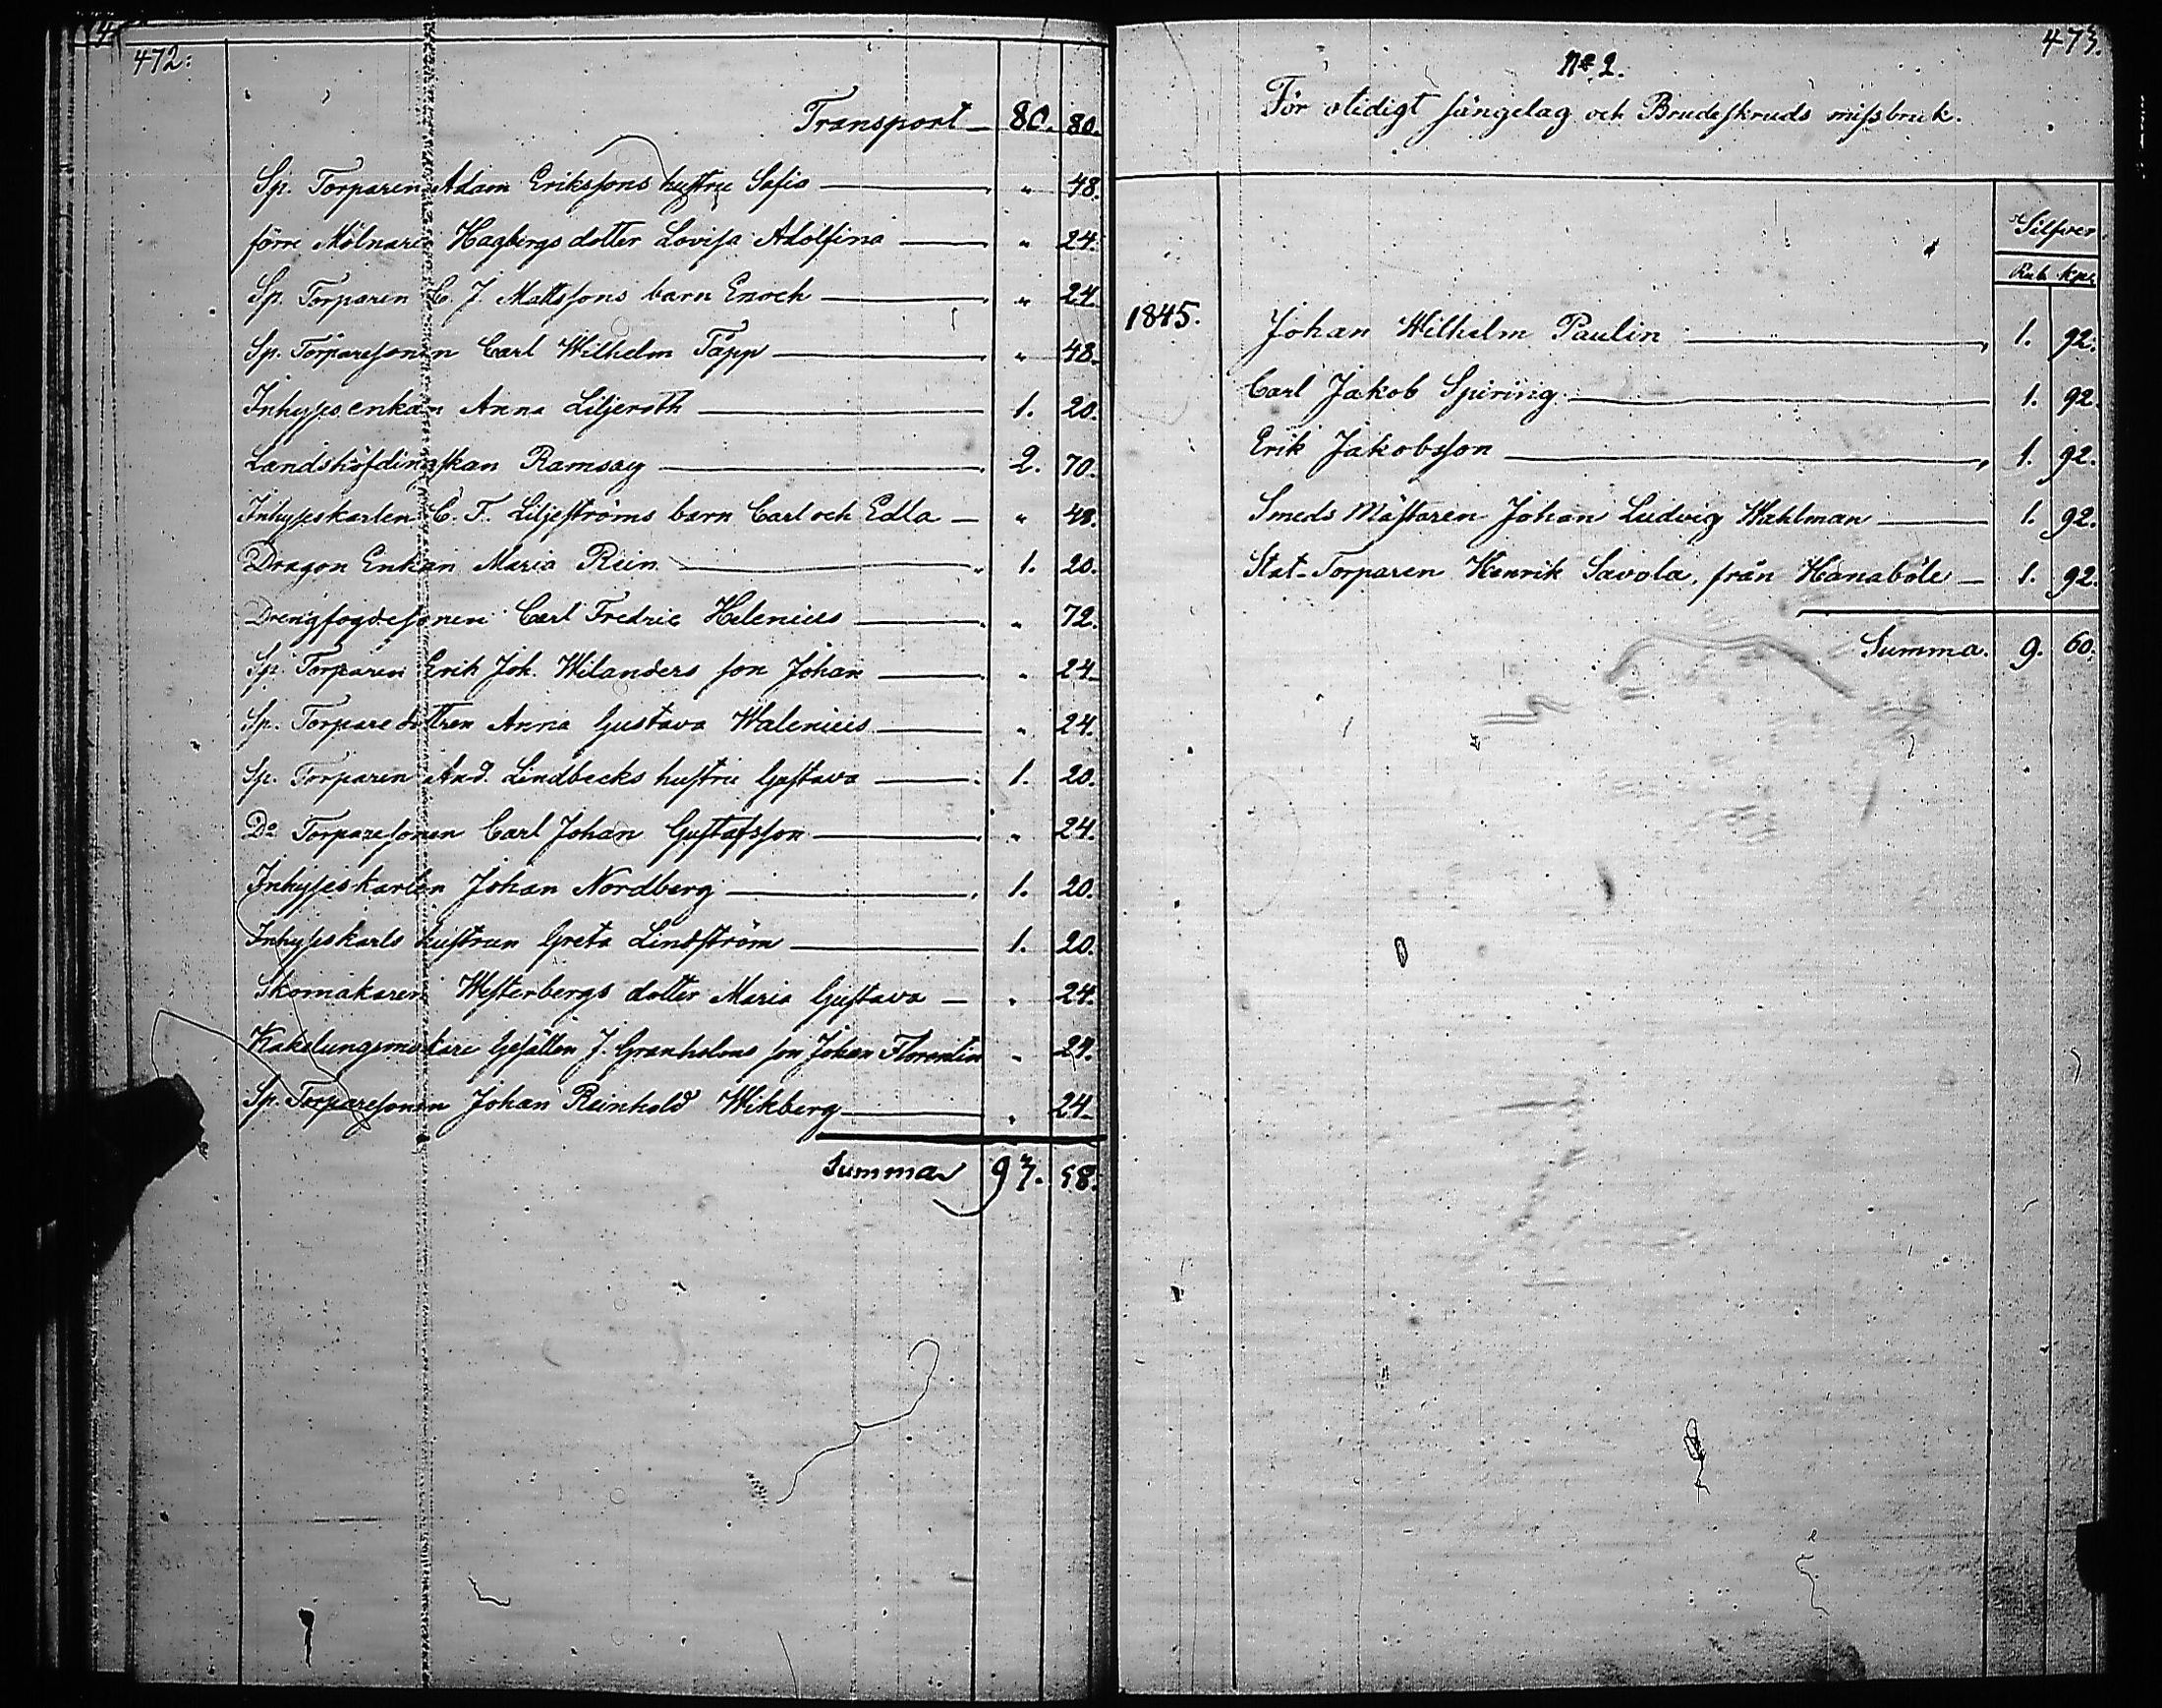 472:
Transport — 80. 80.
Sp. Torparen Adam Erikssons hustru Sofia — " 48.
förre Mölnaren Hagbergs dotter Lovisa Adolfina — " 24.
Sp. Torparen C. J. Mattssons barn Enoch — " 24.
Sp. Torparesonen Carl Wilhelm Täpp — " 48.
Inhyses enkan Anna Liljeroth — 1. 20.
Landshöfdingskan Ramsay — 2. 70.
Inhyseskarlen C. F. Liljeströms barn Carl och Edla — " 48.
Dragon Enkan Maria Rein — 1. 20.
Drengfogdesonen Carl Fredric Helenius — " 72.
Sp. Torparen Erik Joh. Wilanders son Johan — " 24.
Sp. Torparedottren Anna Gustava Walenius — " 24.
Sp. Torparen And. Lindbecks hustru Gustava — 1. 20.
Do Torparesonen Carl Johan Gustafsson — " 24.
Inhyseskarlen Johan Nordberg — 1. 20.
Inhyseskarls hustrun Greta Lindström — 1. 20.
Skomakaren Westerbergs dotter Maria Gustava — " 24.
Kakelungsmakare Gesällen J. Granholms son Johan Florentin " 24.
Sp. Torparesonen Johan Reinhold Wikberg — " 24.
Summa 93. 58.
473.
No 2.
För otidigt sängelag och Brudeskruds missbruk.
Silfver
Rub. kpr
1845. Johan Wilhelm Paulin — 1. 92.
Carl Jakob Spiring — 1. 92.
Erik Jakobsson — 1. 92.
Smeds Mästaren Johan Ludvig Wahlman — 1. 92.
Stat-Torparen Henrik Savola, från Hanaböle — 1. 92.
Summa. 9. 60.